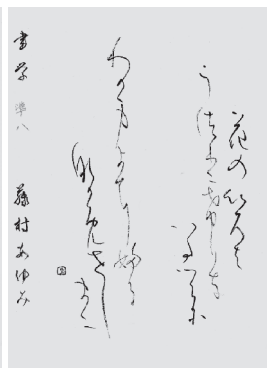 花のいろは
うつりにけりな
いたつらに
わか身よにふる
なかめせしまに
書学 準八 藤村あゆみ